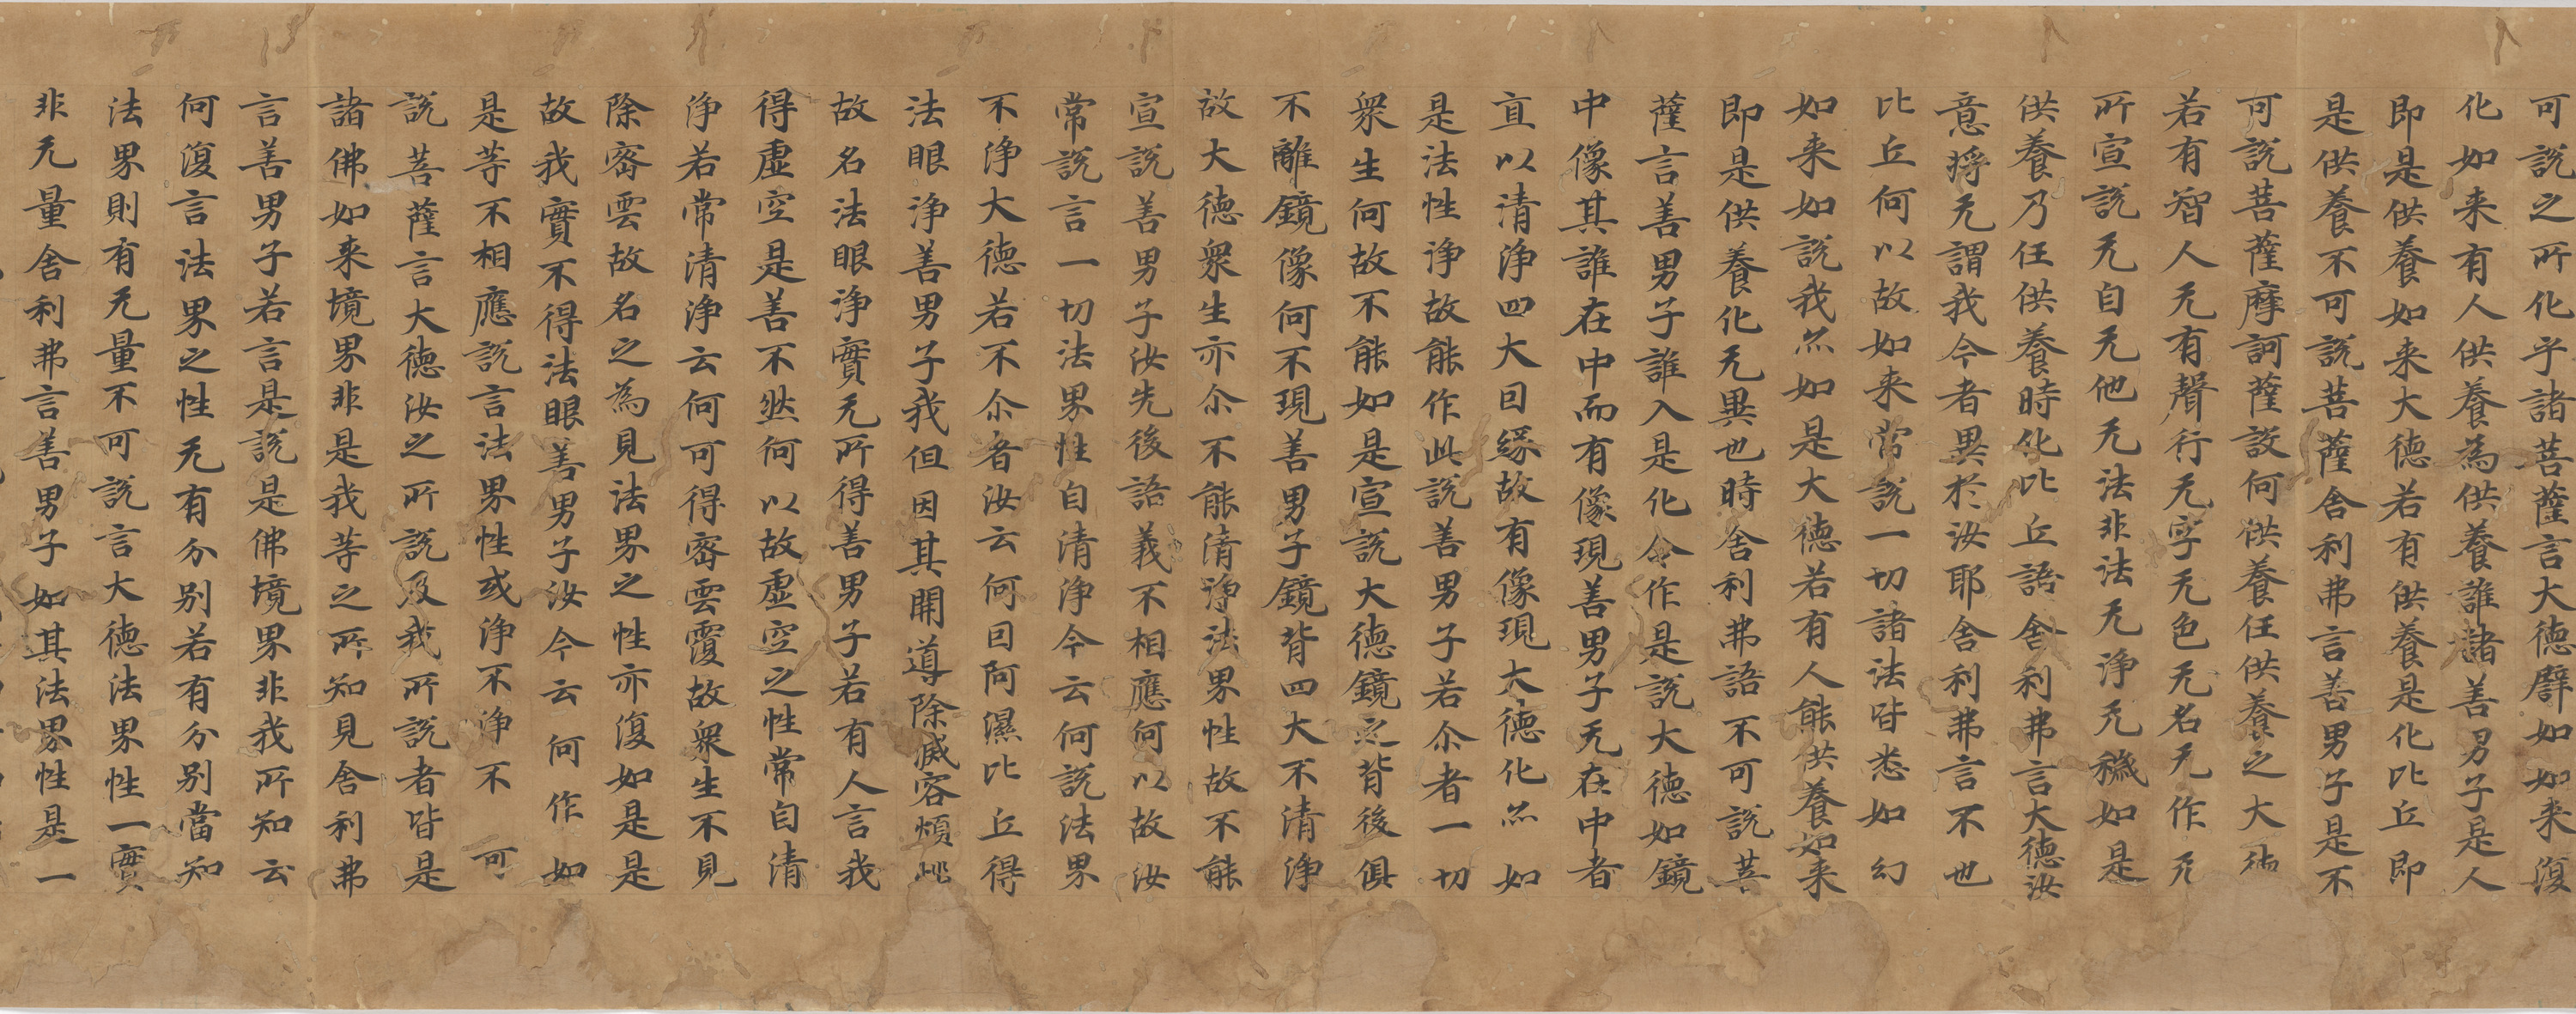 可說之所化乎諸菩薩言大德譬如如来復
化如来有人供養為供養誰諸善男子是人
即是供養如来大德若有供養是化比丘即
是供養不可說菩薩舍利弗言善男子是不
可說菩薩摩訶薩設何供養任供養之大德
若有智人无有聲行无字无色无名无作无
所宣說无自无他无法非法无淨无穢如是
供養乃任供養時化比丘語舍利弗言大德汝
意將无謂我今者異於汝耶舍利弗言不也
比丘何以故如来常說一切諸法皆悉如幻
如来如說我亦如是大德若有人能供養如来
即是供養化无異也時舍利弗語不可說菩
薩言善男子誰入是化令作是說大德如鏡
中像其誰在中而有像現善男子无在中者
直以清淨四大因緣故有像現大德化亦如
是法性淨故能作此說善男子若尒者一切
衆生何故不能如是宣說大德鏡之背後俱
不離鏡像何不現善男子鏡背四大不清淨
故大德衆生亦尒不能清淨法界性故不能
宣說善男子汝先後語義不相應何以故汝
常說言一切法界性自清淨今云何說法界
不淨大德若不尒者汝云何因阿濕比丘得
法眼淨善男子我但因其開導除滅客煩惱
故名法眼淨實无所得善男子若有人言我
得虛空是善不然何以故虛空之性常自清
淨若常清淨云何可得密雲覆故衆生不見
除密雲故名之為見法界之性亦復如是是
故我實不得法眼善男子汝今云何作如
是等不相應說言法界性或淨不淨不可
說菩薩言大德汝之所說及我所說者皆是
諸佛如来境界非是我等之所知見舍利弗
言善男子若言是說是佛境界非我所知云
何復言法界之性无有分別若有分別當知
法界則有无量不可說言大德法界性一實
非无量舍利弗言善男子如其法界性是一